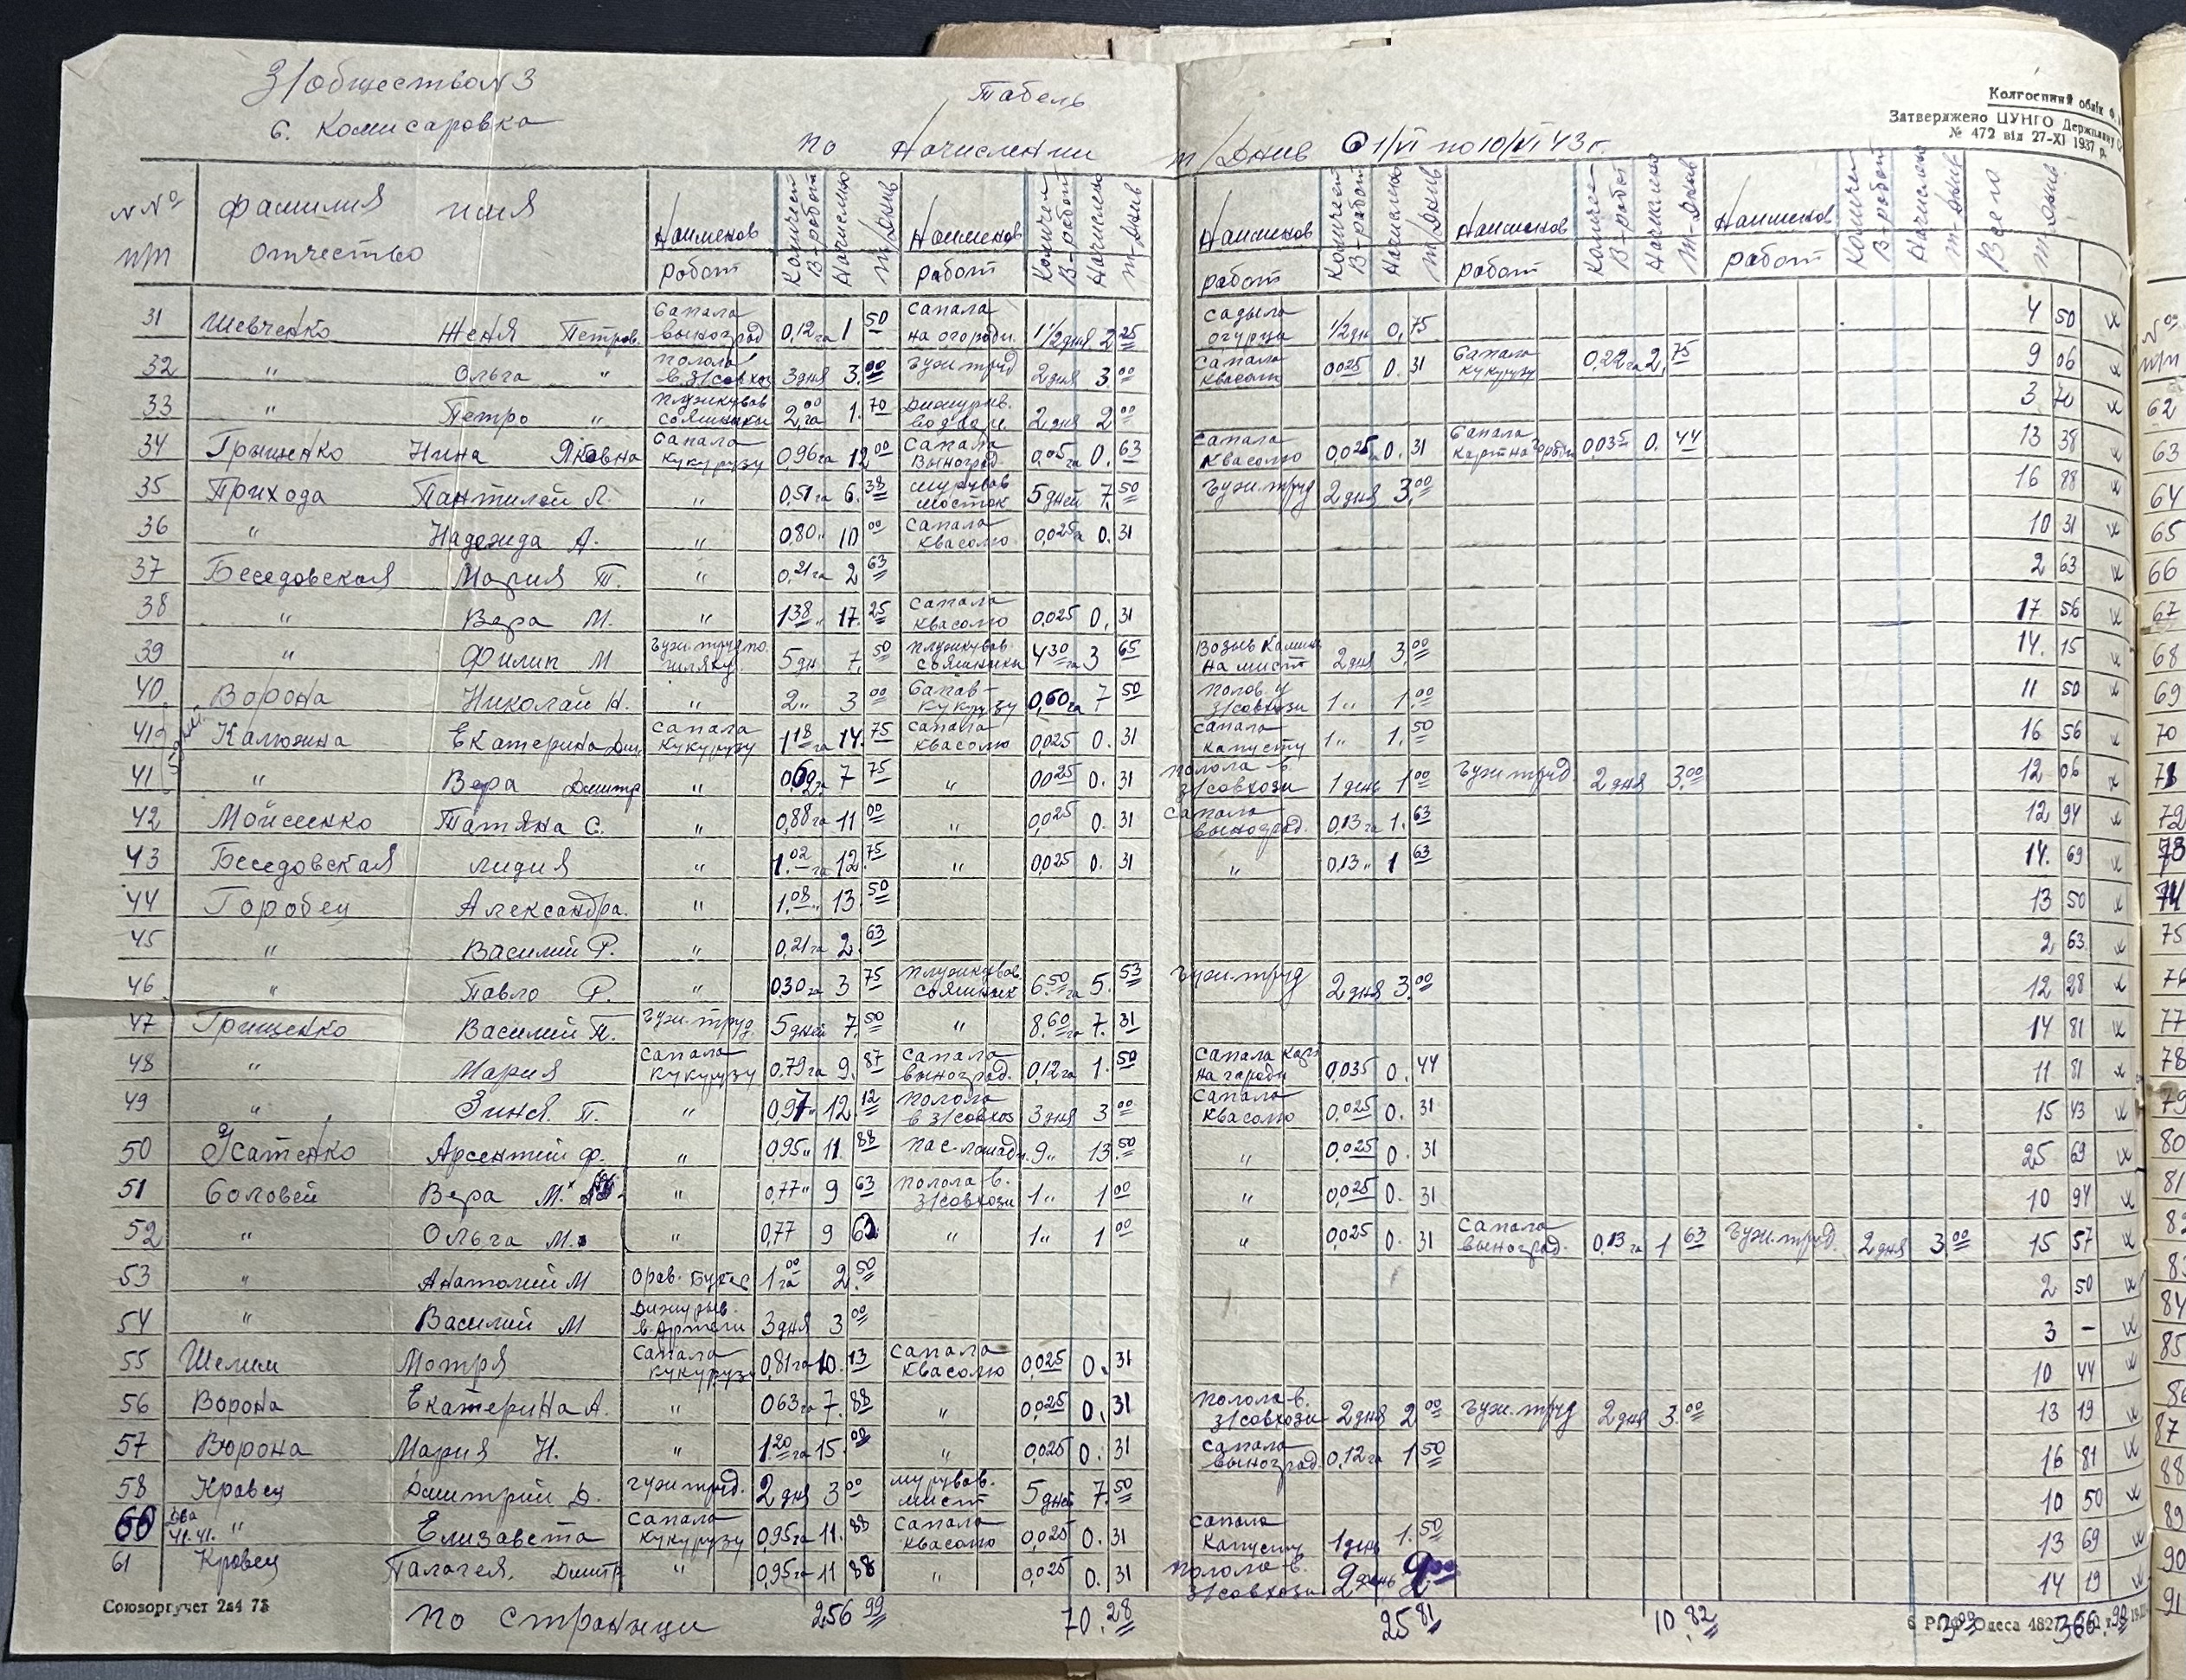 З/общество №3
с. Комисаровка
Табель
по начислении т/днив с 1/VI по 10/VI 43 г.
Колгоспний облік
Затверджено ЦУНГО Держплану
№ 472 від 27-XI 1937 р.
№№ п/п Фамилия имя отчество Наименов работ Количест в-работ Начислено т/днив Наименов работ Количест в-работ Начислено т-днив Наименов работ Количест в-работ Начислено т/днив Наименов работ Количест в-работ Начислено т-днив Наименов работ Количест в-работ Начислено т-днив Всего т-днив
31 Шевченко Женя Петров. Сапала выноград 0,12 га 1 50 Сапала на огороди 1 1/2 дня 2 25 садыла огурца 1/2 дн 0,75 4 50
32 " Ольга " полола в з/совхоз 3 дня 3.00 гужтруд 2 дня 3.00 Сапала квасолю 0025 0.31 Сапала кукурузу 0,22 га 2,75 9 06
33 " Петро " плужкував сояшныки 2,00 га 1.70 дижурив. 2 дня 2 00 3 70
34 Грыщенко Нина Яковна Сапала кукурузу 0,96 га 12 00 Сапала выноград 0,05 га 0.63 Сапала квасолю 0,025 0.31 Сапала 0,035 0.44 13 38
35 Прихода Пантилей Л. " 0,51 га 6.38 мурував мосток 5 дней 7.50 гуж.труд 2 дня 3.00 16 88
36 " Надежда А. " 0,80 " 10 00 Сапала квасолю 0,025 0.31 10 31
37 Беседовская Мария Т. " 0,21 га 2 63 2 63
38 " Вера М. " 1 38 " 17.25 Сапала квасолю 0,025 0.31 17 56
39 " Филип М гуж.труд по шляху 5 дн. 7.50 плужкував. сояшныки 4 30 га 3 65 возыв камни на мист 2 дня 3.00 14.15
40 Ворона Николай Н. " 2 " 3 00 Сапав кукурузу 0,60 га 7 50 полов у з/совхози 1 " 1.00 11 50
41а Калюжна Екатерина Дми Сапала кукурузу 1 18 га 14.75 сапала квасолю 0,025 0.31 Сапала капусту 1 " 1.50 16 56
41 " Вера Дмитр " 0,62 га 7 75 " 0025 0.31 полола в. з/совхози 1 день 1 00 гуж.труд 2 дня 3.00 12 06
42 Мойсеенко Татяна С. " 0,88 га 11 00 " 0,025 0.31 Сапала выноград. 0,13 га 1.63 12 94
43 Беседовская лидия " 1.02 га 12.75 " 0,025 0.31 " 0,13 " 1 63 14.69
44 Горобец Александра. " 1.08 " 13.50 13 50
45 " Василий Р. " 0,21 га 2.63 2 63
46 " Павло Р. " 0,30 га 3 75 плужкував. сояшнык 6.50 га 5.53 гуж.труд 2 дня 3.00 12 28
47 Грищенко Василий П. гуж.труд. 5 дней 7.50 " 8.60 га 7.31 14 81
48 " Мария Сапала кукурузу 0,79 га 9.87 Сапала выноград. 0,12 га 1.50 Сапала на гароди 0,035 0.44 11 81
49 " Зиня. П. " 0,97 " 12.12 полола в з/совхоз 3 дня 3 00 Сапала квасолю 0,025 0.31 15 43
50 Усатенко Арсентий Ф. " 0,95 " 11.88 пас лошад. 9 " 13.50 " 0,025 0.31 25 69
51 Соловей Вера М. " 0,77 " 9 63 полола в. з/совхози 1 " 1 00 " 0,025 0.31 10 94
52 " Ольга М. " 0,77 9 63 " 1 " 1 00 " 0,025 0.31 Сапала выноград. 0,13 га 1 63 гуж.труд. 2 дня 3 00 15 57
53 " Анатолий М 1 00 га 2.50 2 50
54 " Василий М дижурыв. в артели 3 дня 3 00 3 –
55 Шелим Мотря Сапала кукурузу 0,81 га 10.13 Сапала квасолю 0,025 0.31 10 44
56 Ворона Екатерина А. " 0,63 га 7.88 " 0,025 0.31 полола в. з/совхози 2 дня 2 00 гуж.труд 2 дня 3.00 13 19
57 Ворона Мария Н. " 1.20 га 15.00 " 0,025 0.31 Сапала выноград. 0,12 га 1 50 16 81
58 Кравец Дмитрий Д. гуж.труд. 2 дня 3 00 мурував. мист 5 дней 7.50 10 50
60 " Елизавета Сапала кукурузу 0,95 га 11.88 Сапала квасолю 0,025 0.31 Сапала капусту 1 день 1.50 13 69
61 Кровец Палагея. Дмитр " 0,95 га 11 88 " 0,025 0.31 полола в. з/совхози 14 19
Союзоргучет
по страныци 256 99 70.28 25 81 10.82 Одеса
№ п/п
62
63
64
65
66
67
68
69
70
71
72
73
74
75
76
77
78
79
80
81
82
83
84
85
86
87
88
89
90
91